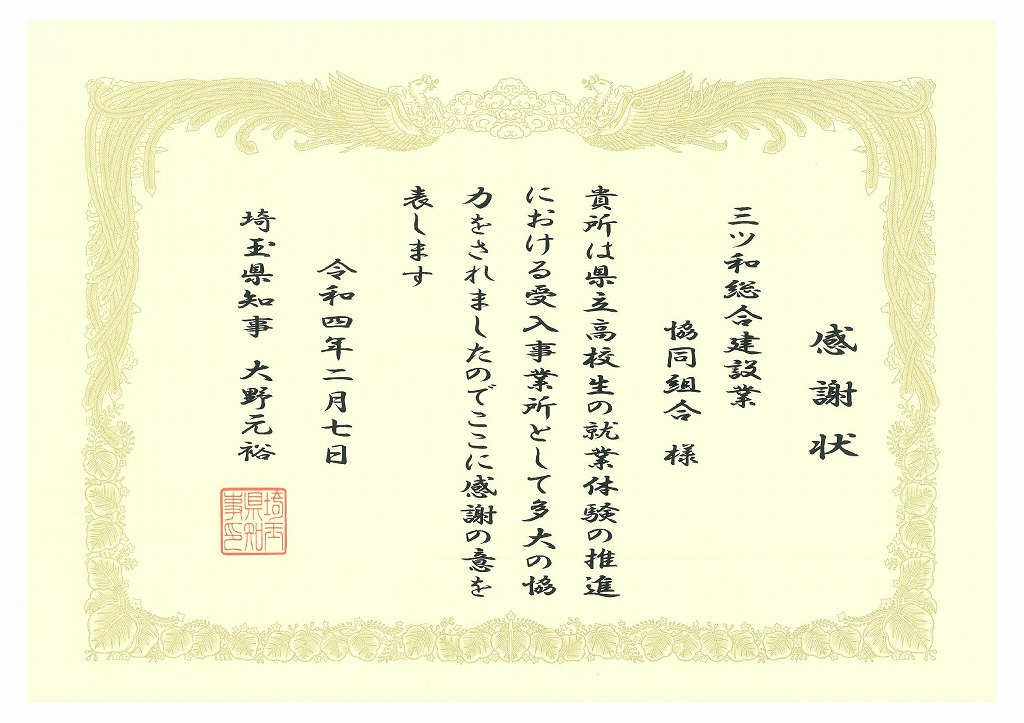 感謝状
三ツ和総合建設業
協同組合 様
貴所は県立高校生の就業体験の推進
における受入事業所として多大の協
力をされましたのでここに感謝の意を
表します
令和四年二月七日
埼玉県知事 大野元裕
埼玉
県知
事印